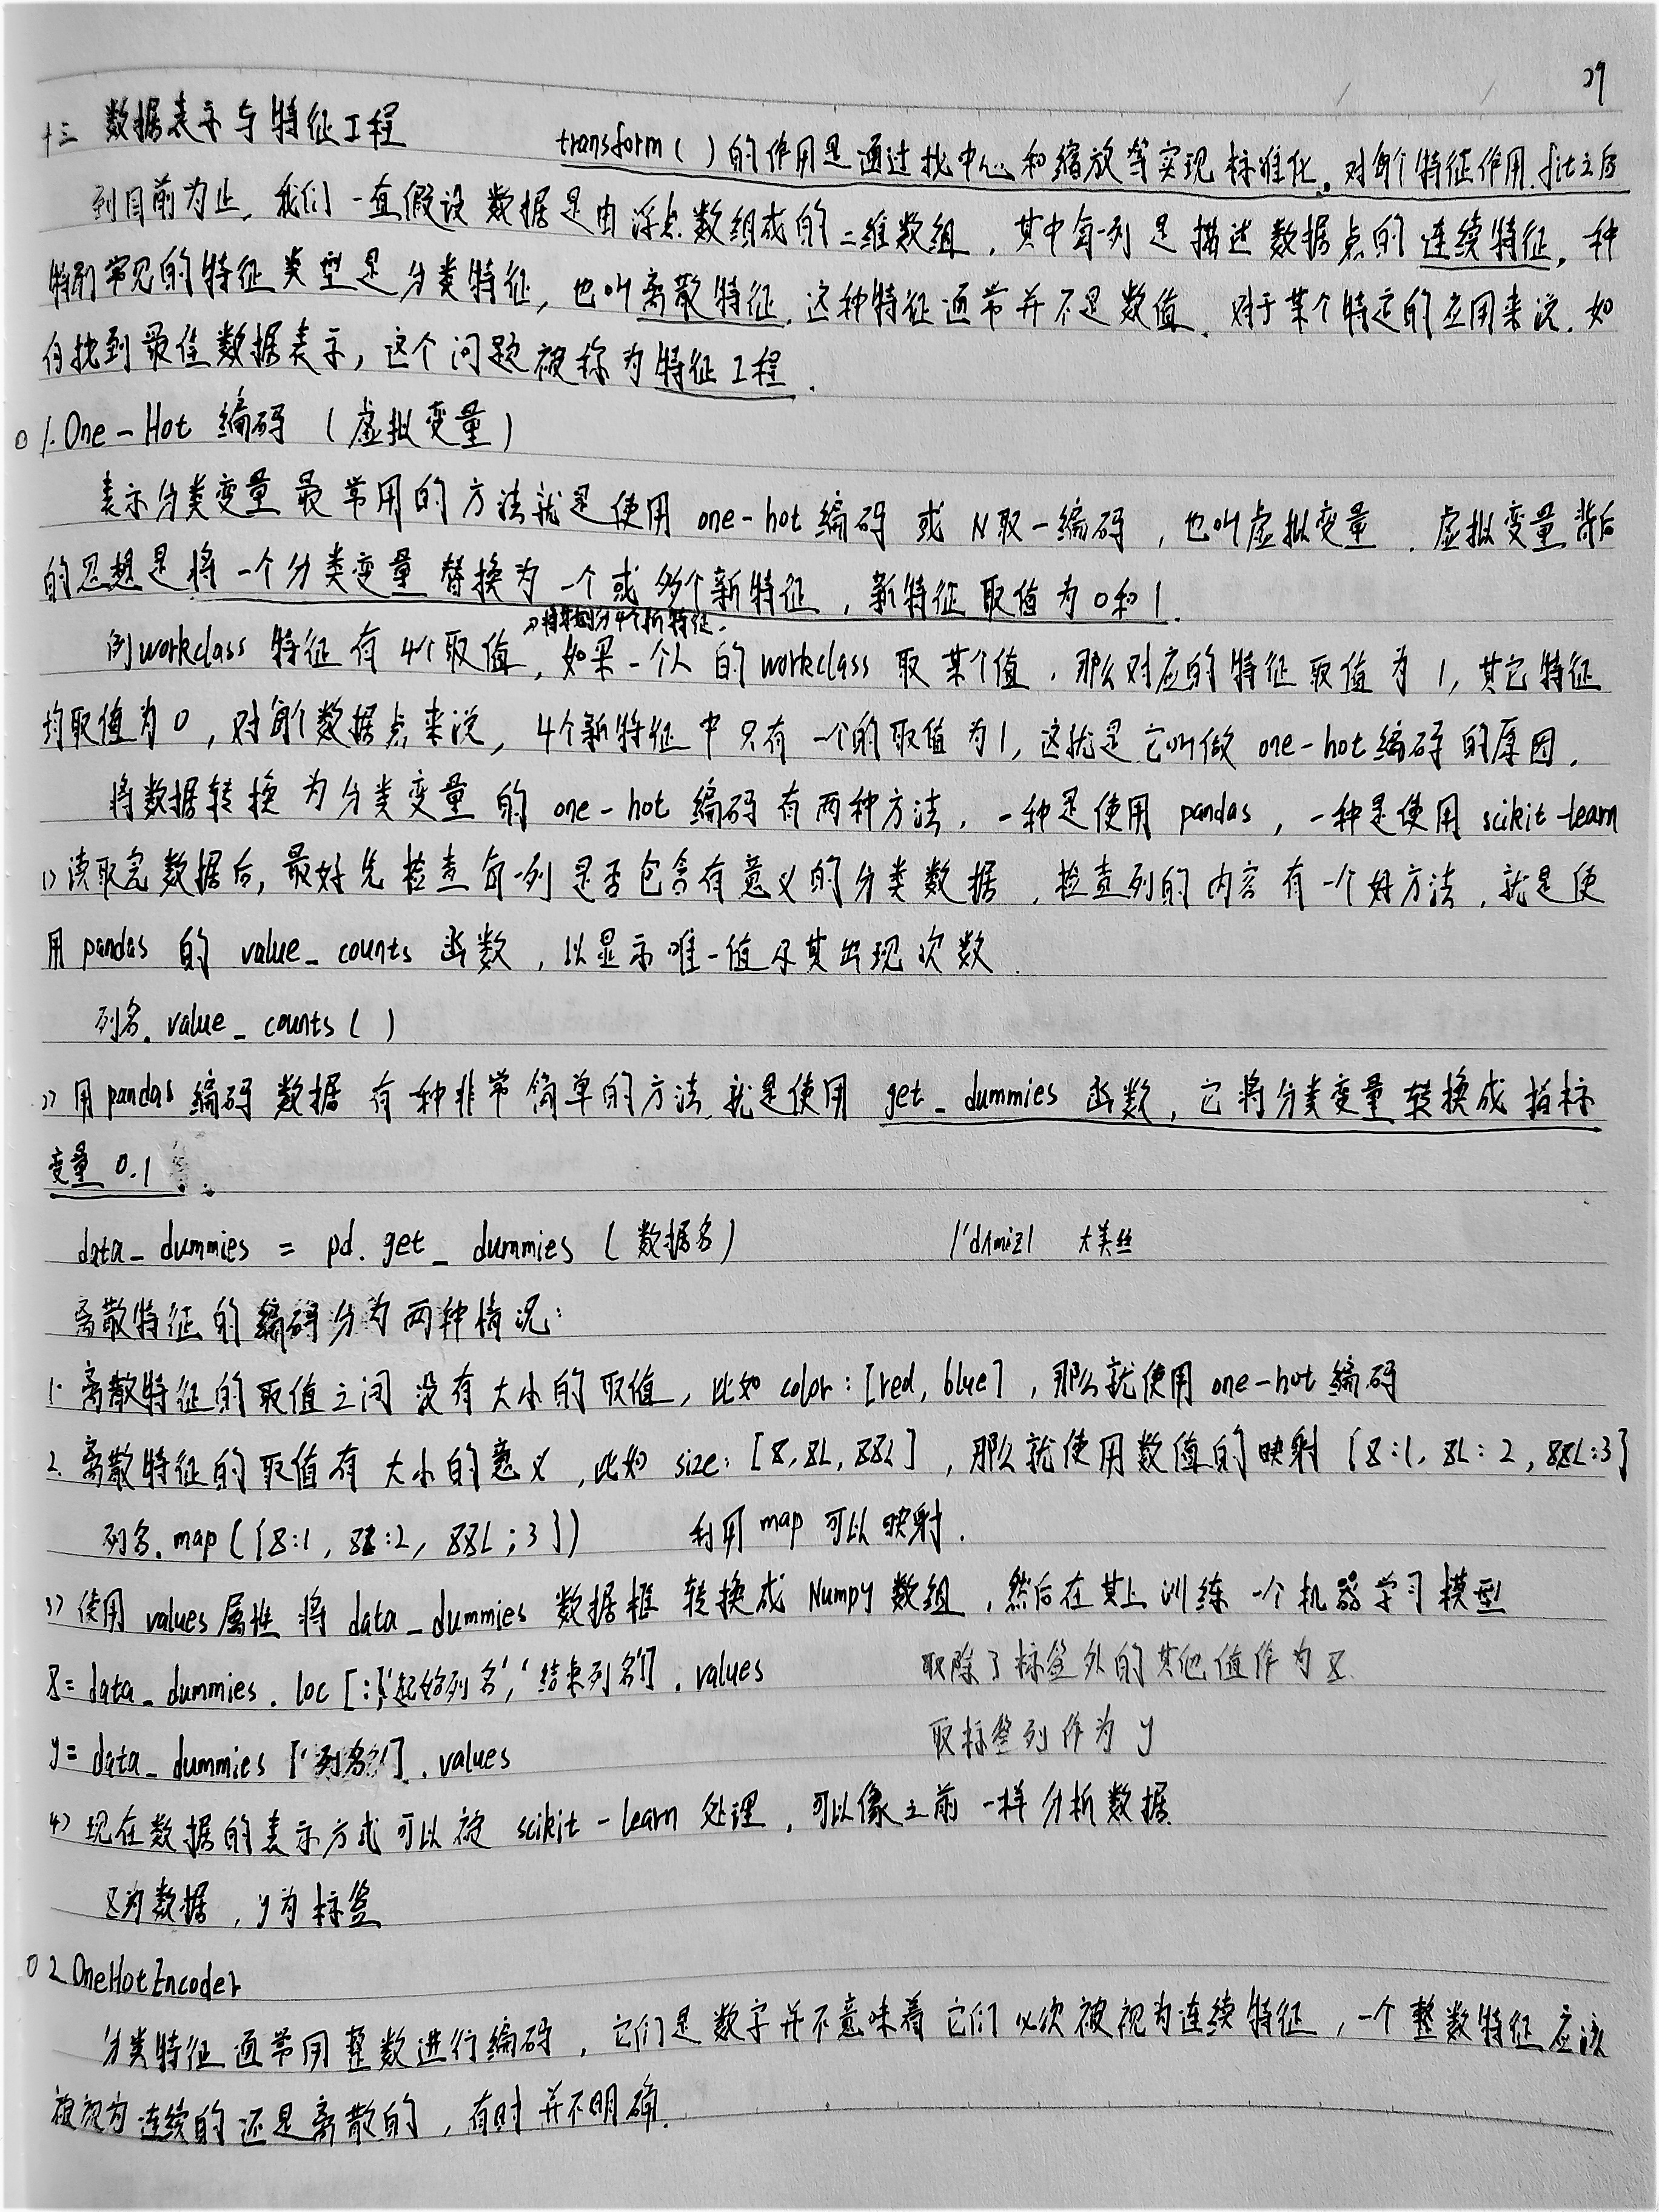 29
十三 数据表示与特征工程
transform()的作用是通过找中心和缩放等实现标准化,对每个特征作用.fit之后
到目前为止,我们一直假设数据是由浮点数组成的二维数组,其中每一列是描述数据点的连续特征,一种
特别常见的特征类型是分类特征,也叫离散特征.这种特征通常并不是数值.对于某个特定的应用来说.如
何找到最佳数据表示,这个问题被称为特征工程.
1.One-Hot 编码(虚拟变量)
表示分类变量最常用的方法就是使用 one-hot 编码 或 N取一编码,也叫虚拟变量.虚拟变量背后
的思想是将一个分类变量替换为一个或多个新特征,新特征取值为0和1.
将其划分4个新特征.
例workclass 特征有4个取值,如果一个人的workclass 取某个值,那么对应的特征取值为1,其它特征
均取值为0,对每个数据点来说,4个新特征中只有一个的取值为1,这就是它叫做 one-hot 编码的原因.
将数据转换为分类变量的 one-hot 编码有两种方法,一种是使用 pandas,一种是使用 scikit-learn
1) 读取完数据后,最好先检查每一列是否包含有意义的分类数据,检查列的内容有一个好方法,就是使
用 pandas 的 value_counts 函数,以显示唯一值及其出现次数.
列名.value_counts()
2) 用pandas 编码数据有一种非常简单的方法,就是使用 get_dummies 函数,它将分类变量转换成指标
变量 0.1
data_dummies = pd.get_dummies(数据名) /'dʌmiz/ 大美丝
离散特征的编码分为两种情况:
1. 离散特征的取值之间没有大小的取值,比如 color:[red, blue],那么就使用 one-hot 编码
2. 离散特征的取值有大小的意义,比如 size:[X, XL, XXL],那么就使用数值的映射{X:1, XL:2, XXL:3}
列名.map({X:1, XL:2, XXL;3}) 利用map 可以映射.
3) 使用 values 属性将 data_dummies 数据框转换成 Numpy 数组,然后在其上训练一个机器学习模型
X=data_dummies.loc[:,'起始列名','结束列名'].values 取除了标签外的其他值作为X
y=data_dummies['列名'].values 取标签列作为y
4) 现在数据的表示方式可以被 scikit-learn 处理,可以像之前一样分析数据
X为数据,y为标签
2.OneHotEncoder
分类特征通常用整数进行编码,它们是数字并不意味着它们必须被视为连续特征,一个整数特征应该
被视为连续的还是离散的,有时并不明确.